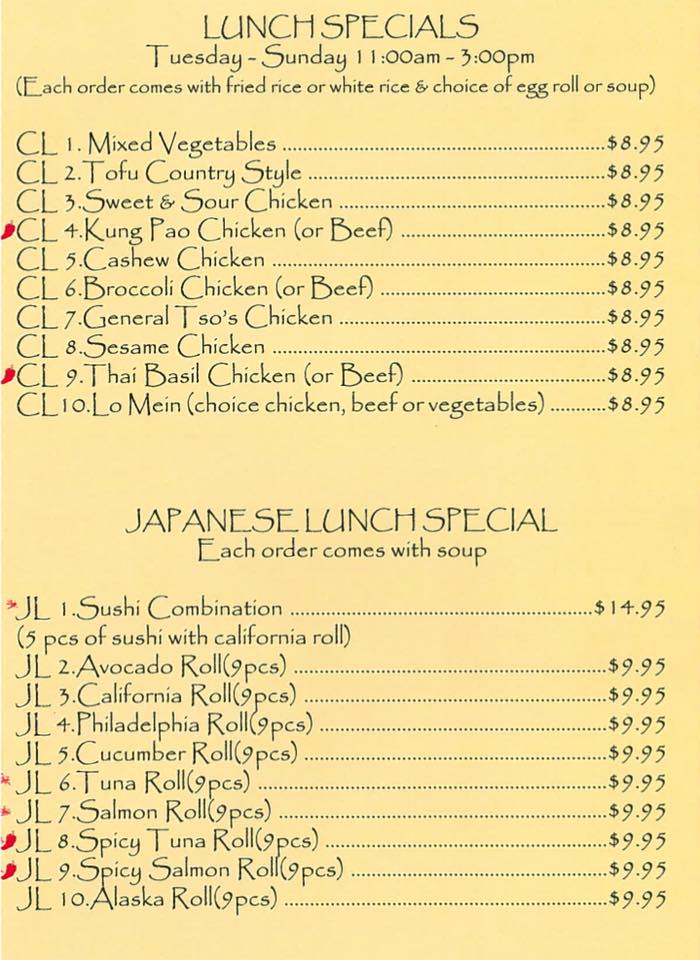 LUNCH SPECIALS
Tuesday - Sunday 11:00am - 3:00pm
(Each order comes with fried rice or white rice & choice of egg roll or soup)
CL 1. Mixed Vegetables ........................................................$8.95
CL 2.Tofu Country Style ....................................................$8.95
CL 3.Sweet & Sour Chicken ...............................................$8.95
CL 4.Kung Pao Chicken (or Beef) ...................................$8.95
CL 5.Cashew Chicken ..........................................................$8.95
CL 6.Broccoli Chicken (or Beef) .......................................$8.95
CL 7.General Tso's Chicken ..............................................$8.95
CL 8.Sesame Chicken ..........................................................$8.95
CL 9.Thai Basil Chicken (or Beef) ..................................$8.95
CL10.Lo Mein (choice chicken, beef or vegetables) ..........$8.95
JAPANESE LUNCH SPECIAL
Each order comes with soup
JL 1.Sushi Combination .....................................................$14.95
(5 pcs of sushi with california roll)
JL 2.Avocado Roll(9pcs) ......................................................$9.95
JL 3.California Roll(9pcs) .....................................................$9.95
JL 4.Philadelphia Roll(9pcs) ..................................................$9.95
JL 5.Cucumber Roll(9pcs) .....................................................$9.95
JL 6.Tuna Roll(9pcs) .............................................................$9.95
JL 7.Salmon Roll(9pcs) .........................................................$9.95
JL 8.Spicy Tuna Roll(9pcs) .................................................$9.95
JL 9.Spicy Salmon Roll(9pcs) .............................................$9.95
JL 10.Alaska Roll(9pcs) ........................................................$9.95